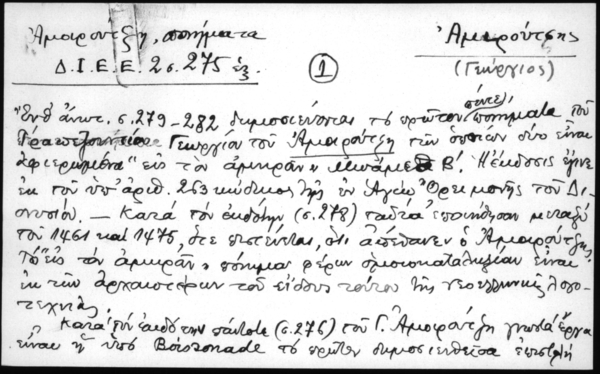 Ἀμοιρούτζη, ποιήματα
Δ.Ι.Ε.Ε. 2 σ. 275 ἑξ.
①
Ἀμιρούτσης
(Γεώργιος)
Ἔνθ' ἀνωτ. σ. 279-282 δημοσιεύονται τὸ πρῶτον πέντε ποιήματα τοῦ
Τραπεζουντίου Γεωργίου τοῦ Ἀμοιρούτζη τῶν ὁποίων δύο εἶναι
ἀφιερωμένα "εἰς τὸν ἀμηρᾶν" Μωάμεθ Β'. Ἡ ἔκδοσις ἔγινε
ἐκ τοῦ ὑπ' ἀριθ. 263 κώδικος τῆς ἐν Ἁγίῳ Ὄρει μονῆς τοῦ Δι-
ονυσίου. — Κατὰ τὸν ἐκδότην (σ. 278) ταῦτα ἐποιήθησαν μεταξὺ
τοῦ 1461 καὶ 1475, ὅτε πιστεύεται, ὅτι ἀπέθανεν ὁ Ἀμοιρούτζης.
Τὸ "εἰς τὸν ἀμηρᾶν" ποίημα φέρον ὁμοιοκαταληξίαν εἶναι
ἐκ τῶν ἀρχαιοτέρων τοῦ εἴδους τούτου τῆς νεοελληνικῆς λογο-
τεχνίας.
Κατὰ τὸν ἐκδότην πάντοτε (σ. 276) τοῦ Γ. Ἀμοιρούτζη γνωστὰ ἔργα
εἶναι ἡ ὑπὸ Boissonade τὸ πρῶτον δημοσιευθεῖσα ἐπιστολὴ